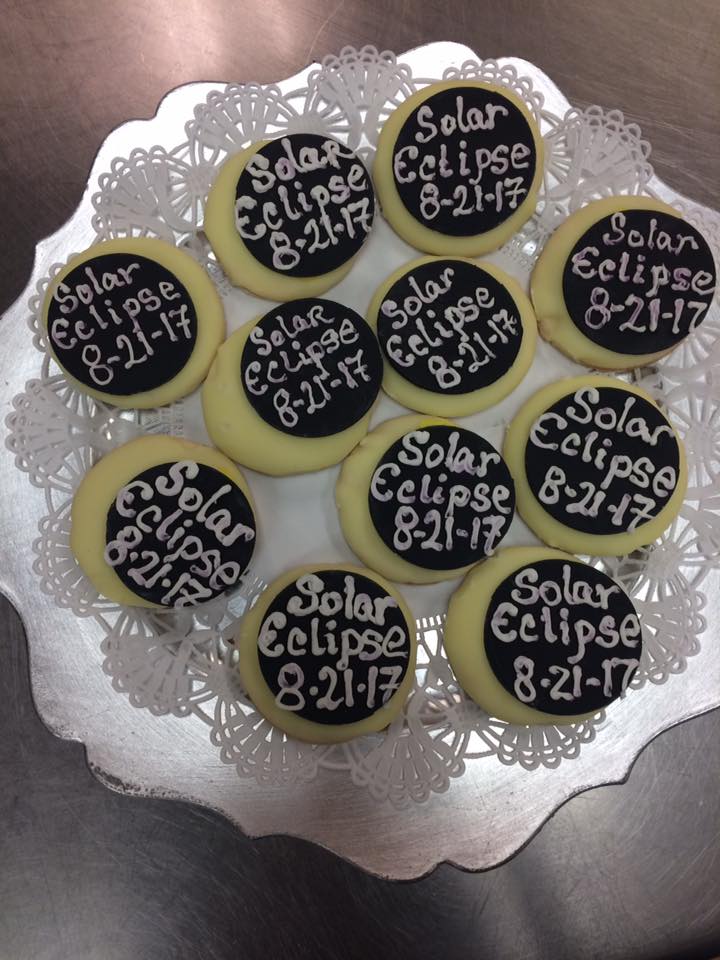 Solar
Eclipse
8-21-17
Solar
Eclipse
8-21-17
Solar
Eclipse
8-21-17
Solar
Eclipse
8-21-17
Solar
Eclipse
8-21-17
Solar
Eclipse
8-21-17
Solar
Eclipse
8-21-17
Solar
Eclipse
8-21-17
Solar
Eclipse
8-21-17
Solar
Eclipse
8-21-17
Solar
Eclipse
8-21-17